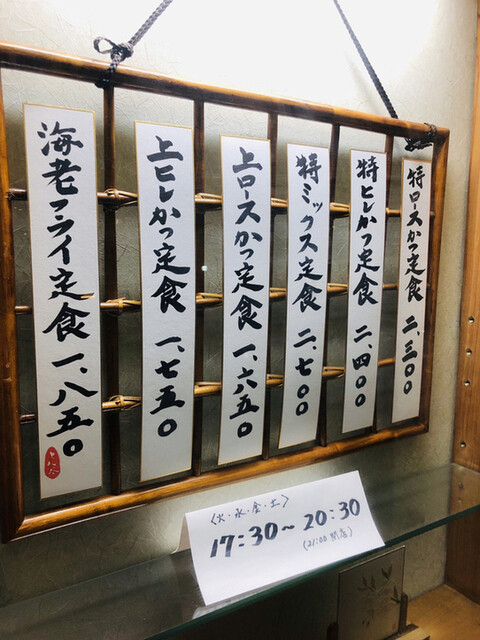 特ロースかつ定食 二、三〇〇
特ヒレかつ定食 二、四〇〇
特ミックス定食 二、七〇〇
上ロースかつ定食 一、六五〇
上ヒレかつ定食 一、七五〇
海老フライ定食 一、八五〇
〈火・水・金・土〉
17:30〜20:30
(21:00 閉店)